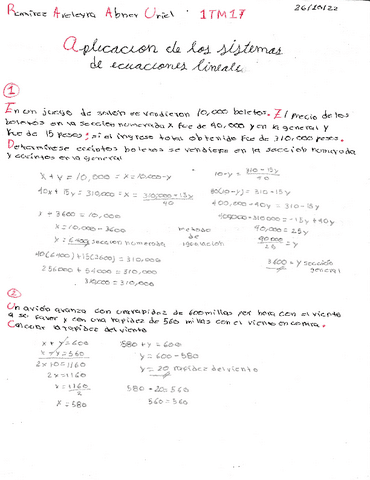 Ramirez Areleyra Abner Uriel 1TM17 26/10/22
Aplicacion de los sistemas
de ecuaciones lineale
1
En un juego de se vendieron 10,000 boletos. El precio de los
boletos en la sección numerada x fue de 40,000 y en la general y
fue de 15 pesos; si el ingreso total obtenido fue de 310,000 pesos.
Determinese cuantos boletos se vendieron en la sección numerada
y cuantos en la general
x + y = 10,000 = x = 10,000 - y
40x + 15y = 310,000 = x = 310,000 - 15y / 40
x + 3600 = 10,000
x = 10,000 - 3600
y = 6400 seccion numerada
40(6400) + 15(3600) = 310,000
256000 + 54000 = 310,000
310,000 = 310,000
metodo
de
igualacion
10 - y = 310 - 15y / 40
400,000 - 40y = 310 - 15y
400,000 - 310,000 = -15y + 40y
90,000 = 25y
90,000 / 25 = y
3600 = y sección
general
2
Un avión avanza con una rapidez de 600 millas per hora con el viento
a su favor y con una rapidez de 560 millas con el viento en contra.
Calcular la rapidez del viento
x + y = 600
x - y = 560
2x = 1160
x = 1160 / 2
x = 580
580 + y = 600
y = 600 - 580
y = 20 rapidez del viento
580 - 20 = 560
560 = 560